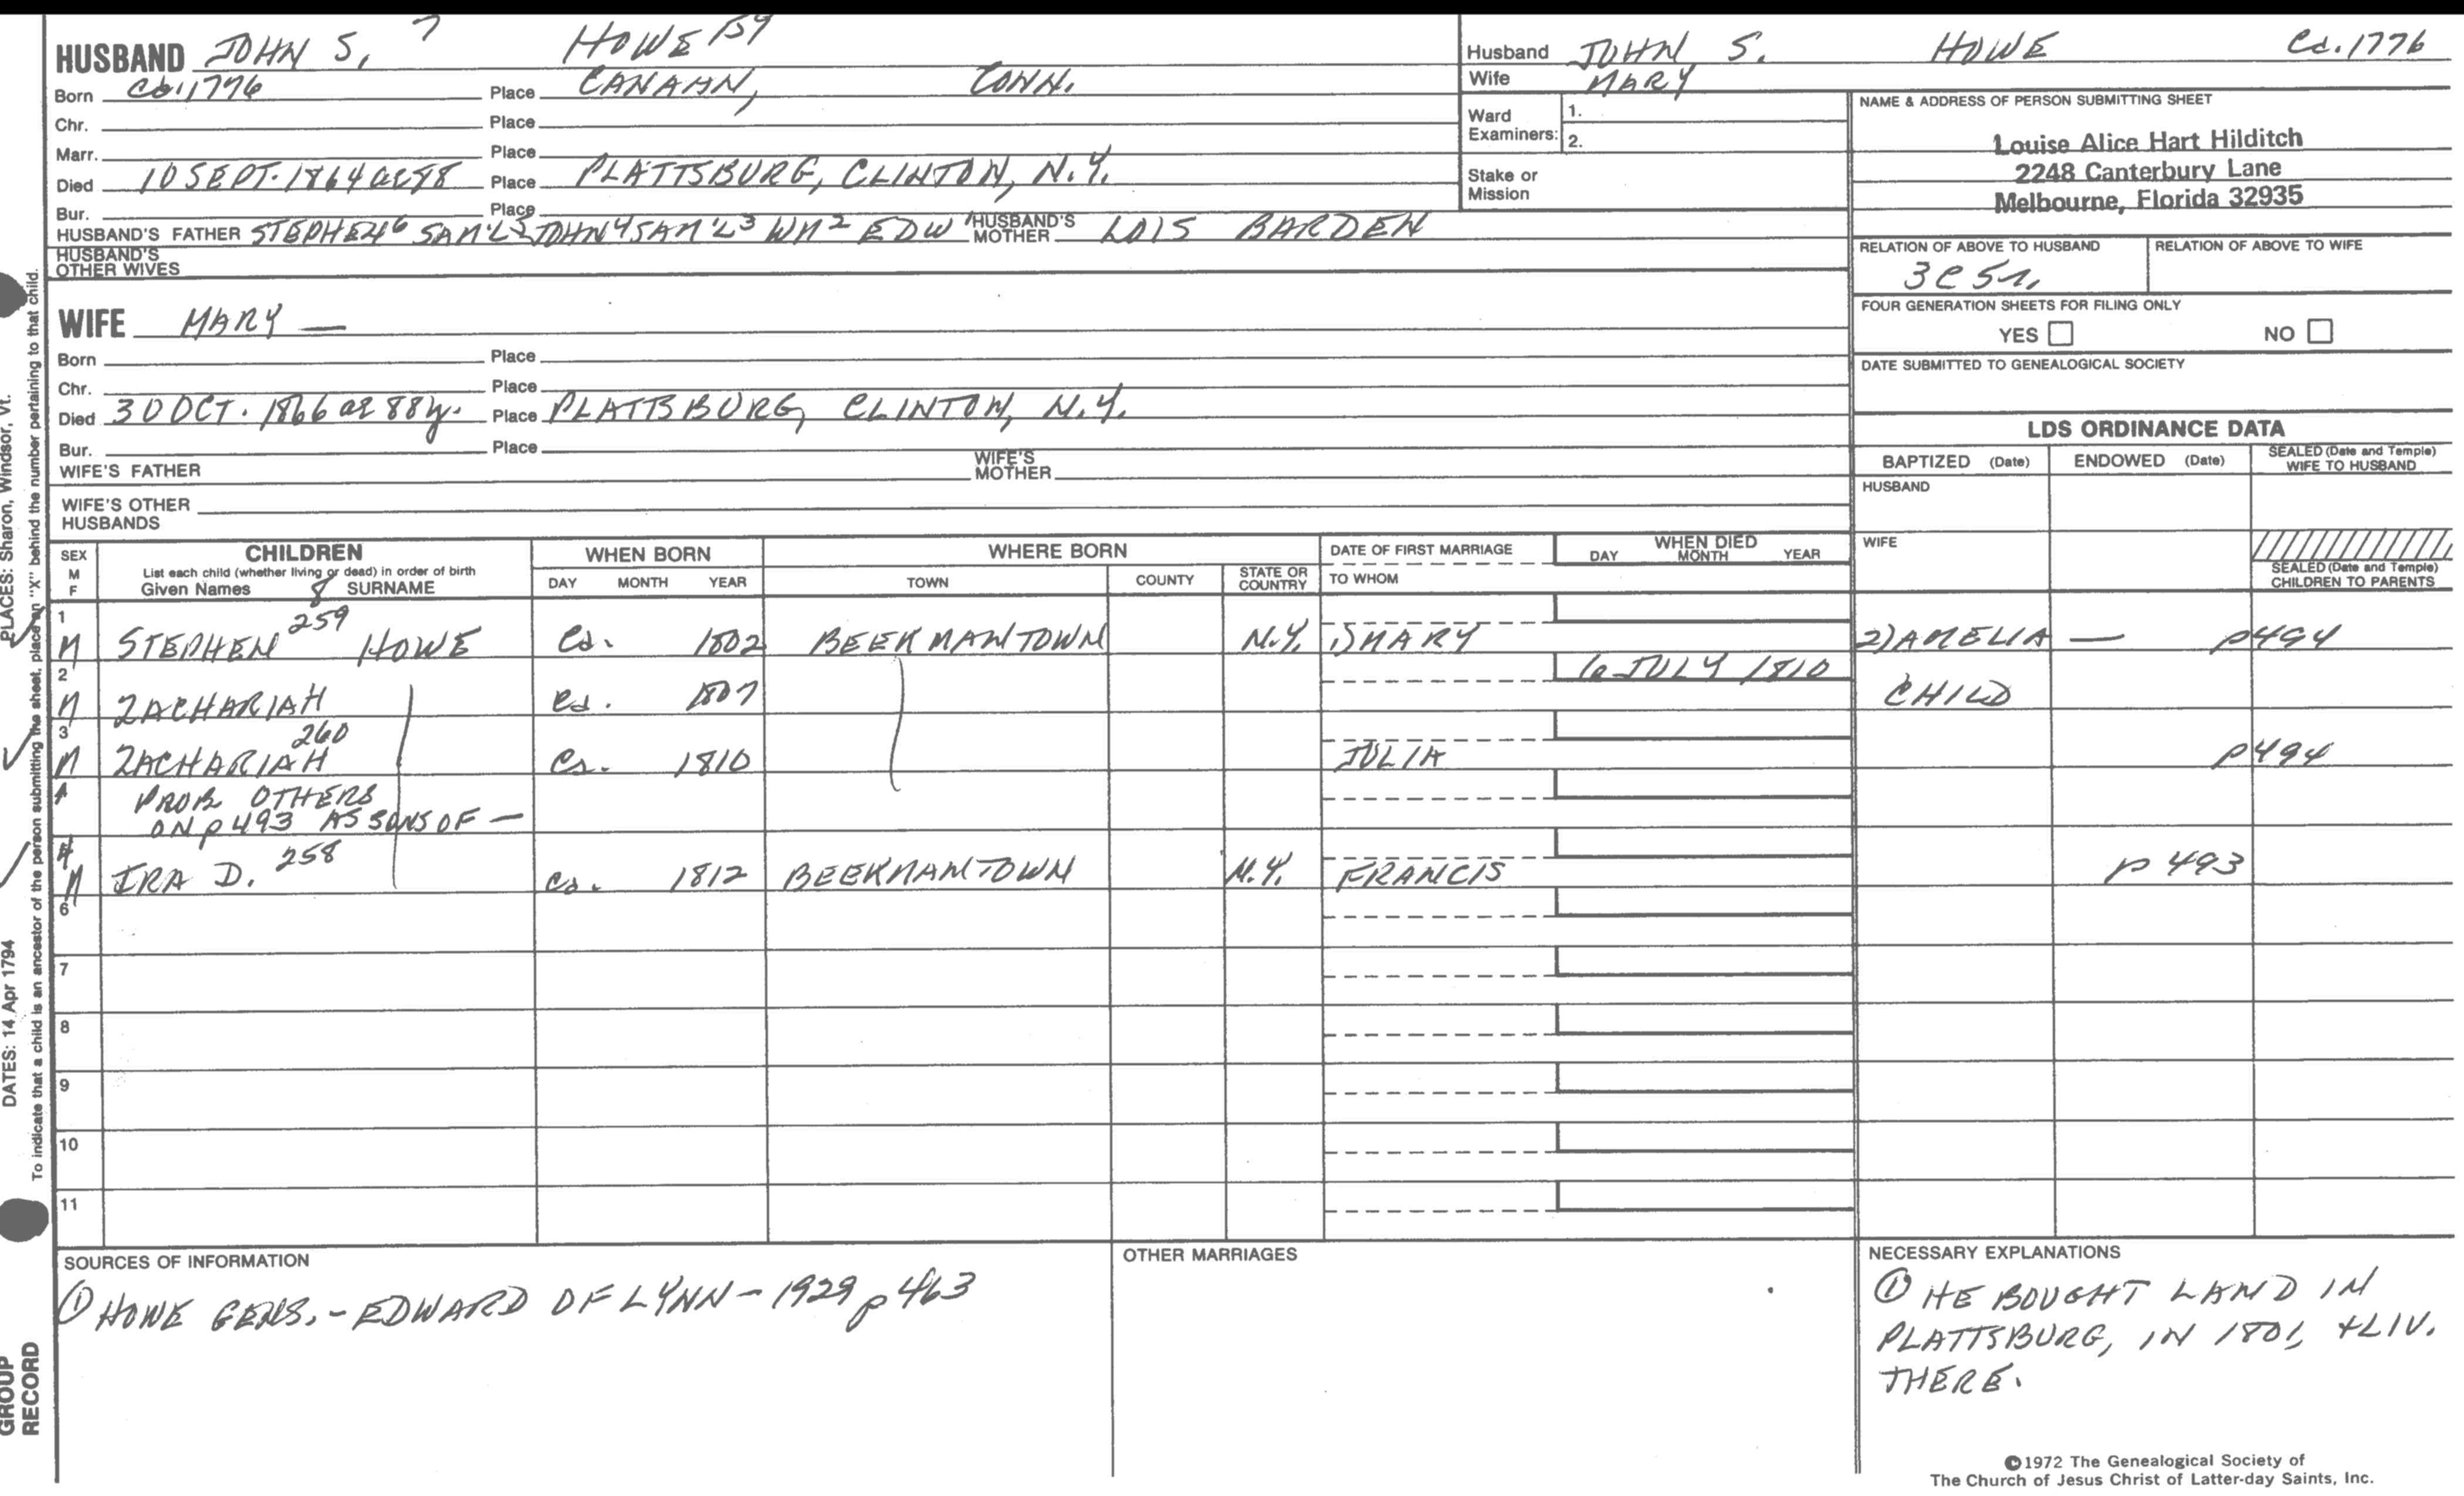 HUSBAND JOHN S. 7 HOWE 159
Born Cd. 1776 Place CANAAN, CONN.
Chr. Place
Marr. Place
Died 10 SEPT. 1864 ae 88 Place PLATTSBURG, CLINTON, N.Y.
Bur. Place
HUSBAND'S FATHER STEPHEN 6 SAM'L 5 JOHN 4 SAM'L 3 WM 2 EDW 1 HUSBAND'S MOTHER LOIS BARDEN
HUSBAND'S OTHER WIVES
Husband JOHN S. HOWE Cd. 1776
Wife MARY
Ward Examiners: 1.
2.
Stake or Mission
NAME & ADDRESS OF PERSON SUBMITTING SHEET
Louise Alice Hart Hilditch
2248 Canterbury Lane
Melbourne, Florida 32935
RELATION OF ABOVE TO HUSBAND RELATION OF ABOVE TO WIFE
3C 5r.
FOUR GENERATION SHEETS FOR FILING ONLY
YES NO
DATE SUBMITTED TO GENEALOGICAL SOCIETY
WIFE MARY —
Born Place
Chr. Place
Died 30 OCT. 1866 ae 88 y. Place PLATTSBURG, CLINTON, N.Y.
Bur. Place
WIFE'S FATHER WIFE'S MOTHER
WIFE'S OTHER HUSBANDS
LDS ORDINANCE DATA
BAPTIZED (Date) ENDOWED (Date) SEALED (Date and Temple) WIFE TO HUSBAND
HUSBAND
WIFE
SEALED (Date and Temple) CHILDREN TO PARENTS
SEX M F CHILDREN WHEN BORN WHERE BORN DATE OF FIRST MARRIAGE WHEN DIED
List each child (whether living or dead) in order of birth
Given Names 8 SURNAME DAY MONTH YEAR TOWN COUNTY STATE OR COUNTRY TO WHOM DAY MONTH YEAR
1 M STEPHEN 259 HOWE Cd. 1802 BEEKMANTOWN N.Y. 1) MARY 2) AMELIA — p494
2 M ZACHARIAH Cd. 1807 6 JULY 1810 CHILD
3 M ZACHARIAH 260 Ca. 1810 JULIA p494
PROB. OTHERS
ON p 493 AS SONS OF —
4 M IRA D. 258 Ca. 1812 BEEKMANTOWN N.Y. FRANCIS p 493
6
7
8
9
10
11
SOURCES OF INFORMATION
① HOWE GENS. - EDWARD OF LYNN - 1929 p 463
OTHER MARRIAGES
NECESSARY EXPLANATIONS
① HE BOUGHT LAND IN
PLATTSBURG, IN 1801, + LIV.
THERE.
©1972 The Genealogical Society of
The Church of Jesus Christ of Latter-day Saints, Inc.
PLACES: Sharon, Windsor, Vt.
To indicate that a child is an ancestor of the person submitting the sheet, place an "X" behind the number pertaining to that child.
DATES: 14 Apr 1794
GROUP
RECORD